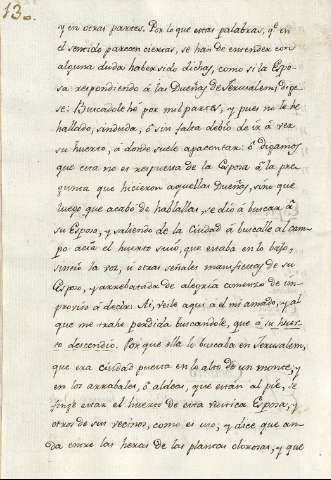 13.
y en otras partes. Por lo que estas palabras, qe. en
el sentido parecen ciertas, se han de entender con
alguna duda haber sido dichas, como si la Espo-
sa respondiendo á las Dueñas de Jerusalem, dige
se: Buscadole hé por mil partes, y pues no le he
hallado, sinduda, ó sin falta debió de ir á ver
su huerto, á donde suele apacentar: ó digamos
que esta no es respuesta de la Esposa á la pre-
gunta que hicieron aquellas Dueñas, sino que
luego que acabó de hablallas, se dió á buscar á
su Esposo, y saliendo de la Ciudad á buscalle al cam-
po acia el huerto suio, que estaba en lo bajo,
sintió la voz, u otras señales manifiestas de su
Esposo, y arrebatada de alegria comenzó de im-
proviso á decir: Ai, veile aqui a el mi amado, y al
que me trahe perdida buscandole, que á su huer-
to descendió. Porque ella le buscaba en Jerusalem,
que era ciudad puesta en lo alto de un monte, y
en los arrabales, ó aldeas, que están al pie, se
finge estar el huerto de esta rustica Esposa, y
otros de sus vecinos, como es uso, y dice que an-
da entre las heras de las plantas olorosas, y que